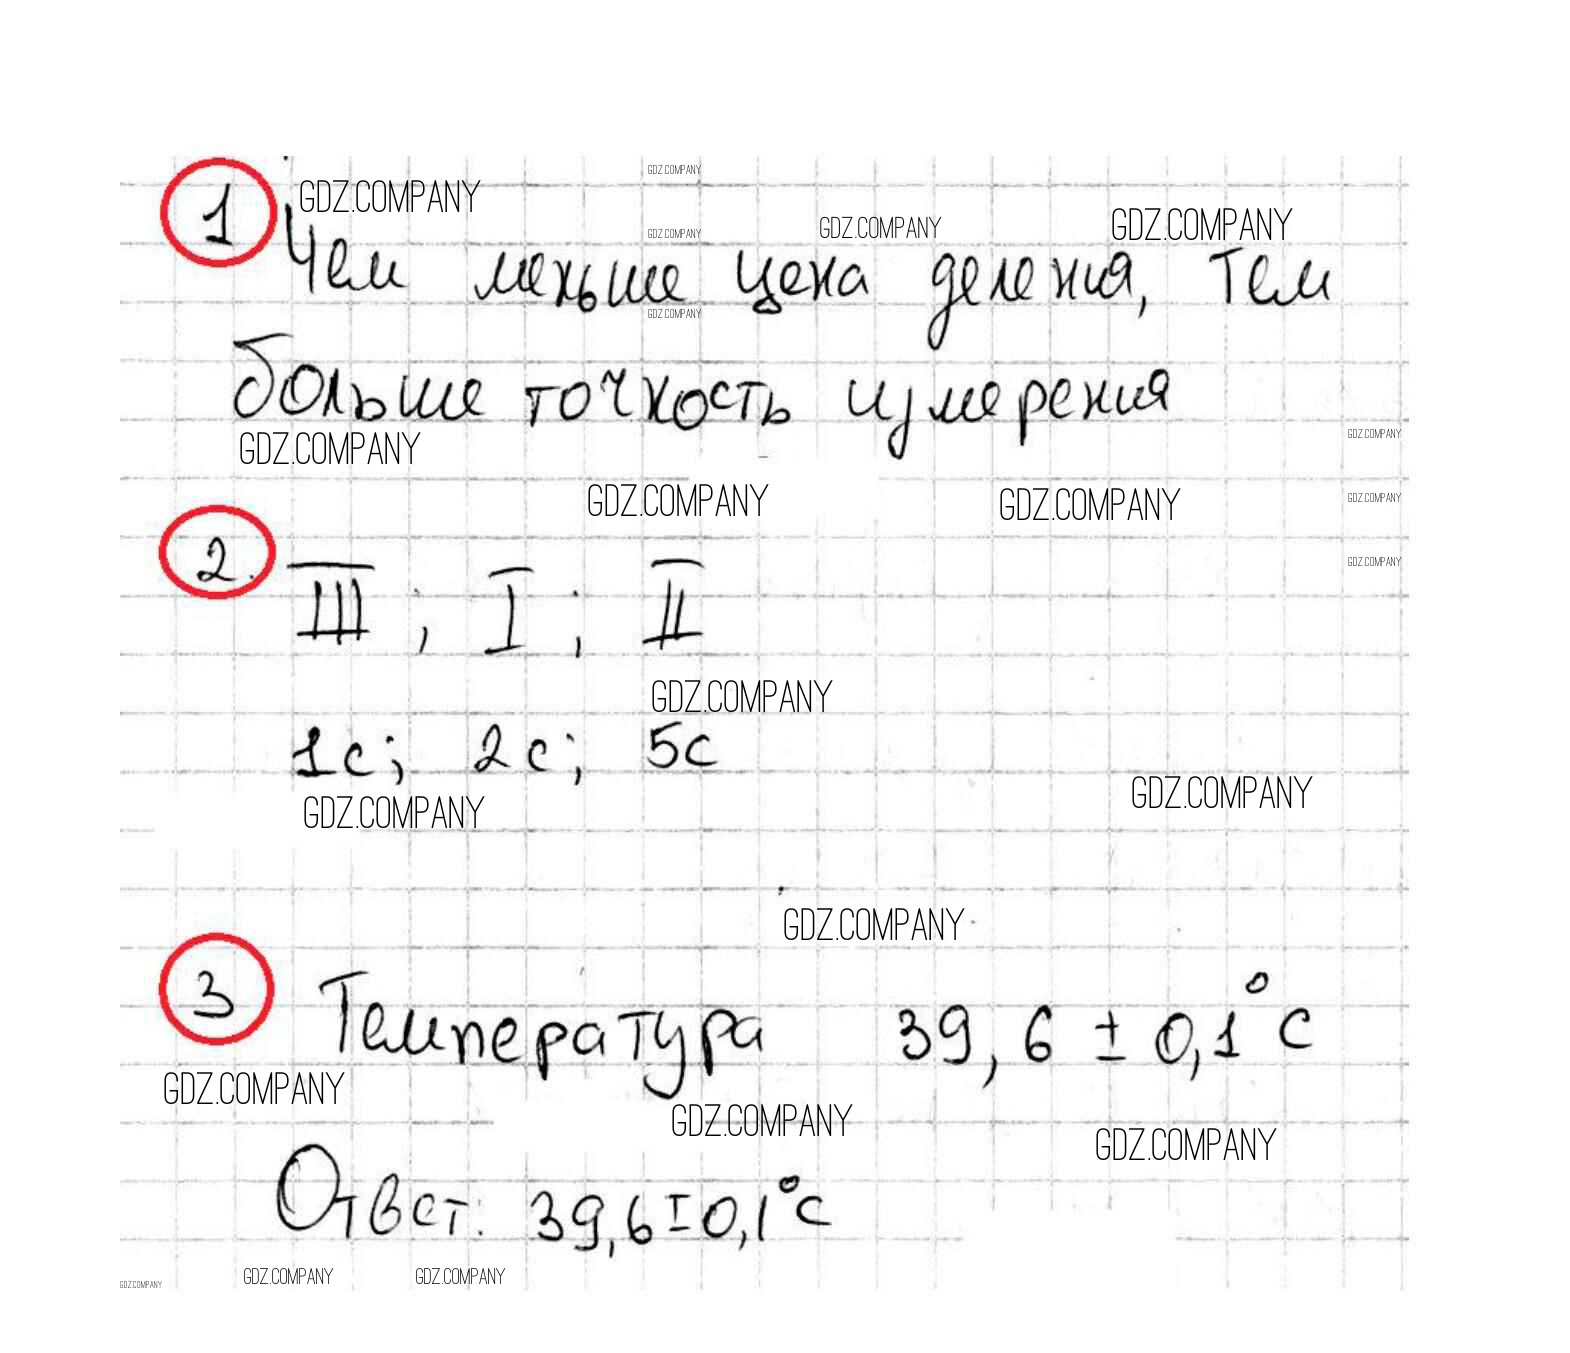 GDZ.COMPANY
1 GDZ.COMPANY GDZ.COMPANY GDZ.COMPANY GDZ.COMPANY
Чем меньше цена деления, тем
GDZ.COMPANY
больше точность измерения
GDZ.COMPANY GDZ.COMPANY
GDZ.COMPANY GDZ.COMPANY GDZ.COMPANY
2. III ; I ; II
GDZ.COMPANY
GDZ.COMPANY
1с; 2с; 5с
GDZ.COMPANY GDZ.COMPANY
GDZ.COMPANY
3 Температура 39,6 ± 0,1°С
GDZ.COMPANY GDZ.COMPANY GDZ.COMPANY
Ответ: 39,6±0,1°С
GDZ.COMPANY GDZ.COMPANY GDZ.COMPANY